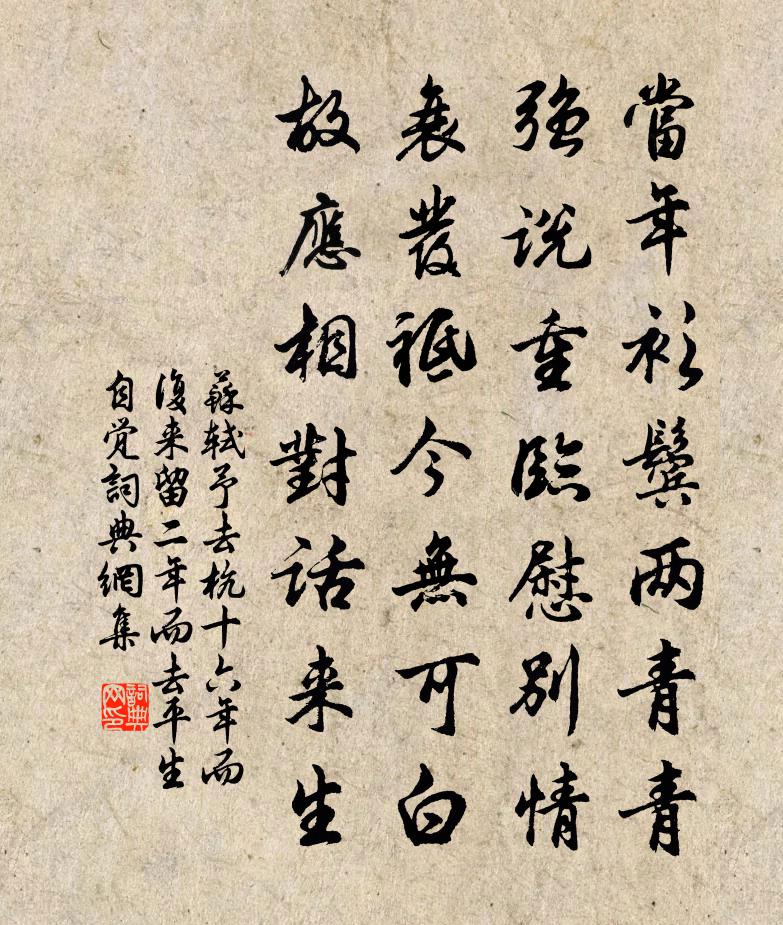 當年衫鬢兩青青
强説重臨慰別情
衰發祗今無可白
故應相對話来生
蘇軾予去杭十六年而
復来留二年而去平生
自覚詞典網集
詞典网印